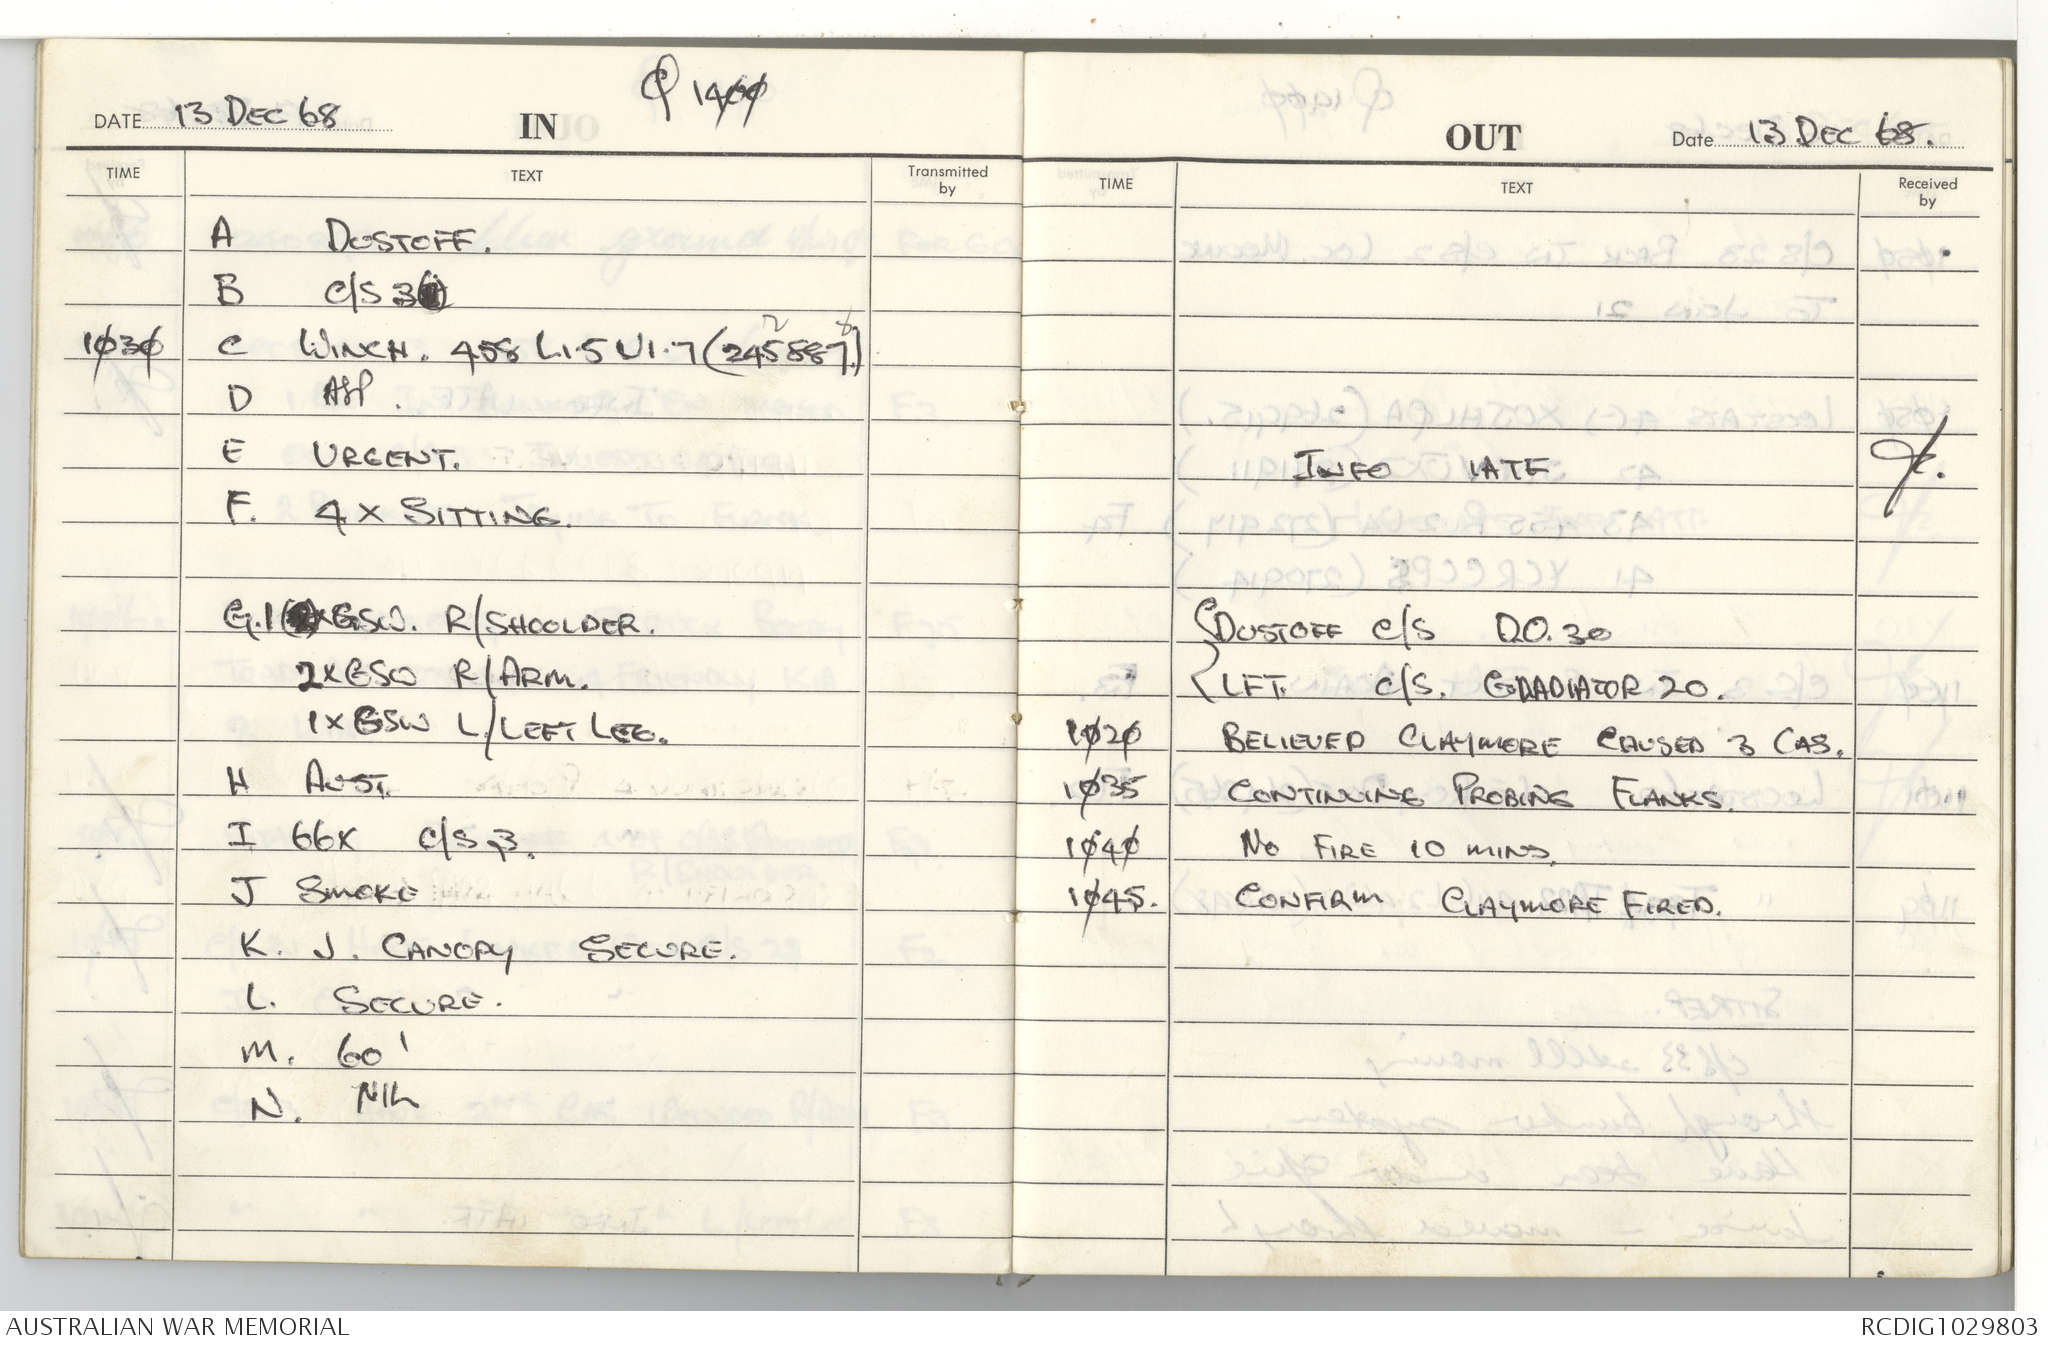 DATE 13 DEC 68
IN
1400
TIME TEXT Transmitted by
A DUSTOFF.
B C/S 3
1030 C WINCH. 458 L1.5 U1.7 (245887.)
2
D ASP.
E URGENT.
F. 4 X SITTING.
G. 1 X GSW. R/SHOOLDER.
2 X GSW R/ARM.
1 X GSW L/LEFT LEG.
H AUST.
I 66X C/S 3.
J SMOKE
K. J. CANOPY SECURE.
L. SECURE.
M. 60'
N. NIL
OUT
Date 13 DEC 68.
TIME TEXT Received by
INFO LATE
DUSTOFF C/S DO. 30
LFT. C/S. GLADIATOR 20.
1020 BELIEVED CLAYMORE CAUSED 3 CAS.
1035 CONTINUING PROBING FLANKS.
1040 NO FIRE 10 MINS.
1045. CONFIRM CLAYMORE FIRED.
AUSTRALIAN WAR MEMORIAL
RCDIG1029803